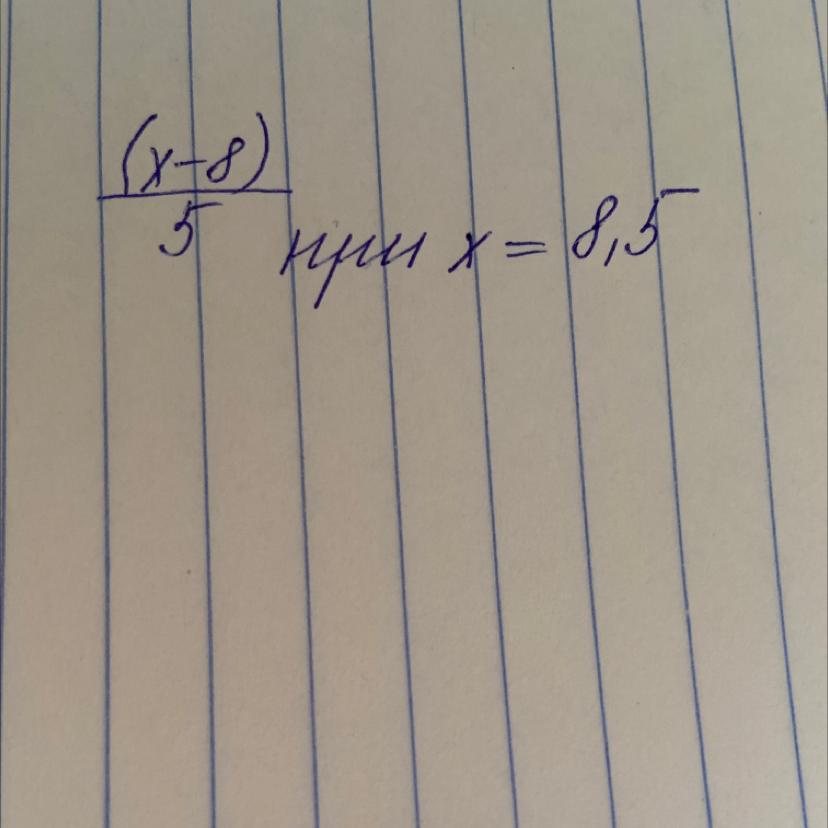 (x-8)
5 при x = 8,5